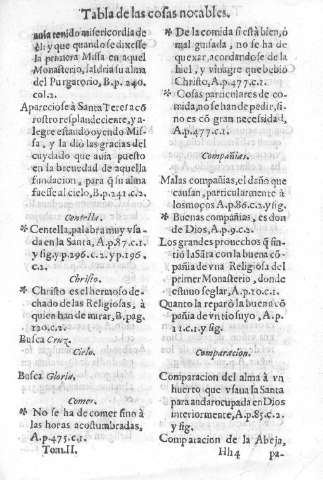 Tabla de las cosas notables.
auia tenido misericordia de
el: y que quando se dixesse
la primera Missa en aquel
Monasterio, saldria su alma
del Purgatorio, B.p. 240.
col.2.
Apareciose à Santa Teresa cõ
rostro resplandeciente, y a-
legre estando oyendo Mis-
sa, y la diò las gracias del
cuydado que auia puesto
en la breuedad de aquella
fundacion, para q̃ su alma
fuesse al cielo, B.p. 241. c.2.
Centella.
* Centella, palabra muy vsa-
da en la Santa, A.p.87.c.1.
y sig.y p.296.c.2. y p.196.
c.2.
Christo.
* Christo es el hermoso de-
chado de las Religiosas, à
quien han de mirar, B, pag.
120.c.2.
Busca Cruz.
Cielo.
Busca Gloria.
Comer.
* No se ha de comer sino à
las horas acostumbradas,
A.p.475.c.1.
Tom.II.
* De la comida si està bien, ò
mal guisada, no se ha de
quexar, acordandose de la
hiel, y vinagre que bebiò
Christo, A.p.477.c.1.
* Cosas particulares de co-
mida, no se han de pedir, si-
no es cõ gran necessidad,
A.p.477.c.1.
Compañias.
Malas compañias, el daño que
causan, particularmente à
los moços A.p.86.c.2.y sig.
* Buenas compañias, es don
de Dios, A.p.9.c.2.
Los grandes prouechos q̃ sin-
tiò la Sãta con la buena cõ-
pañia de vna Religiosa del
primer Monasterio, donde
estuuo seglar, A.p.10.c.2.
Quanto la reparò la buena cõ
pañia de vn tio suyo, A.p.
11.c.1.y sig.
Comparacion.
Comparacion del alma à vn
huerto que vsaua la Santa
para andar ocupada en Dios
interiormente, A.p.85.c.2.
y sig.
Comparacion de la Abeja,
Hh4
pa-